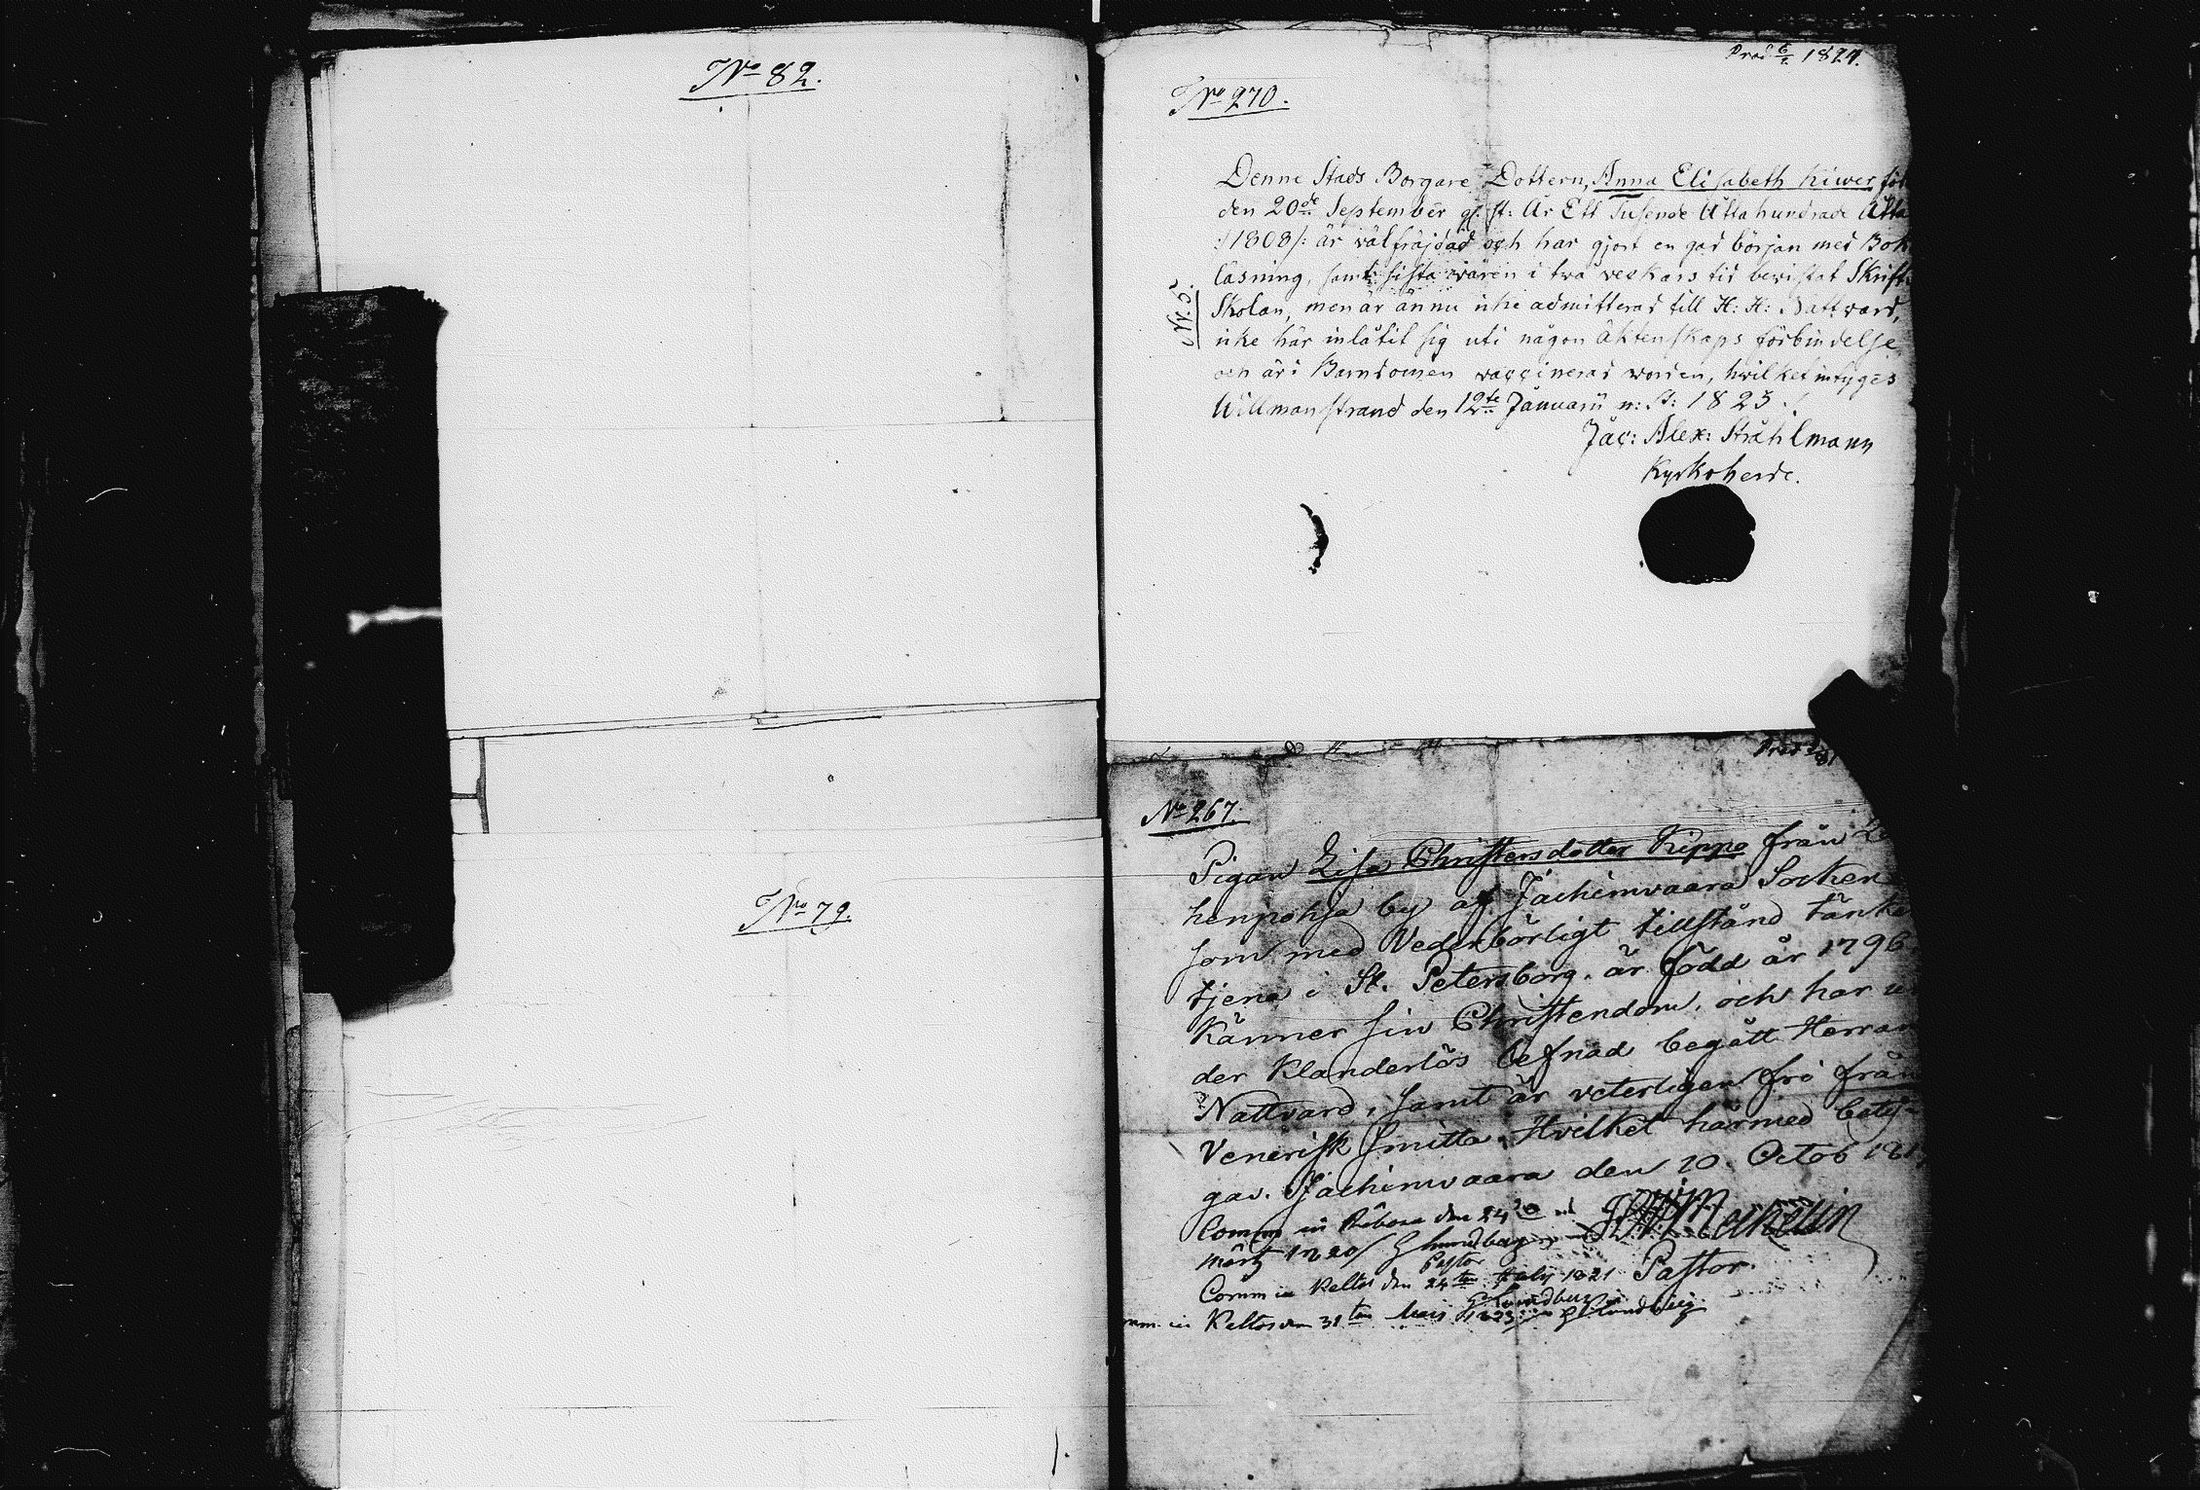 No 82.
No 79.
Prod 6/2 1824.
No 270.
Denne Stads Borgare Dottern, Anna Elisabeth Kiwer föd
den 20de September gl. st: År Ett Tusende Åtta hundrade Åtta
/:1808/: är välfräjdad och har gjort en god början med Bok
läsning, samt sista wåren i två veckors tid bewistat Skrift
Skolan, men är ännu icke admitterad till H: H: Nattvard,
icke här inlåtit sig uti någon äktenskaps förbindelse
och är i Barndomen vaccinerad worden, hvilket intygas
Willmanstrand den 12te Januarii n: St: 1823.
Jac: Alex: Stråhlmann
Kyrkoherde.
Nr. 5.
No 267.
Pigan Lisa Christersdotter Kippo från
henpohja by af Jachimvaara Socken
som med Vederbörligt tillstånd tänker
tjena i St. Petersborg. är född år 1796
Känner sin Christendom, och har un
der Klanderlös lefnad begått Herrans
Nattvard, samt är veterligen fri från
Venerisk smitta. Hvilket härmed bety-
gas. Jachimvaara den 20. Octob 181
Comm in den 24
Märtz 1820/ G Lundberg
Pastor
Pastor.
Comm in Keltos den 24ten July 1821
G Lundberg
Comm. in Keltos den 31ten Mars 1823 G Lundberg